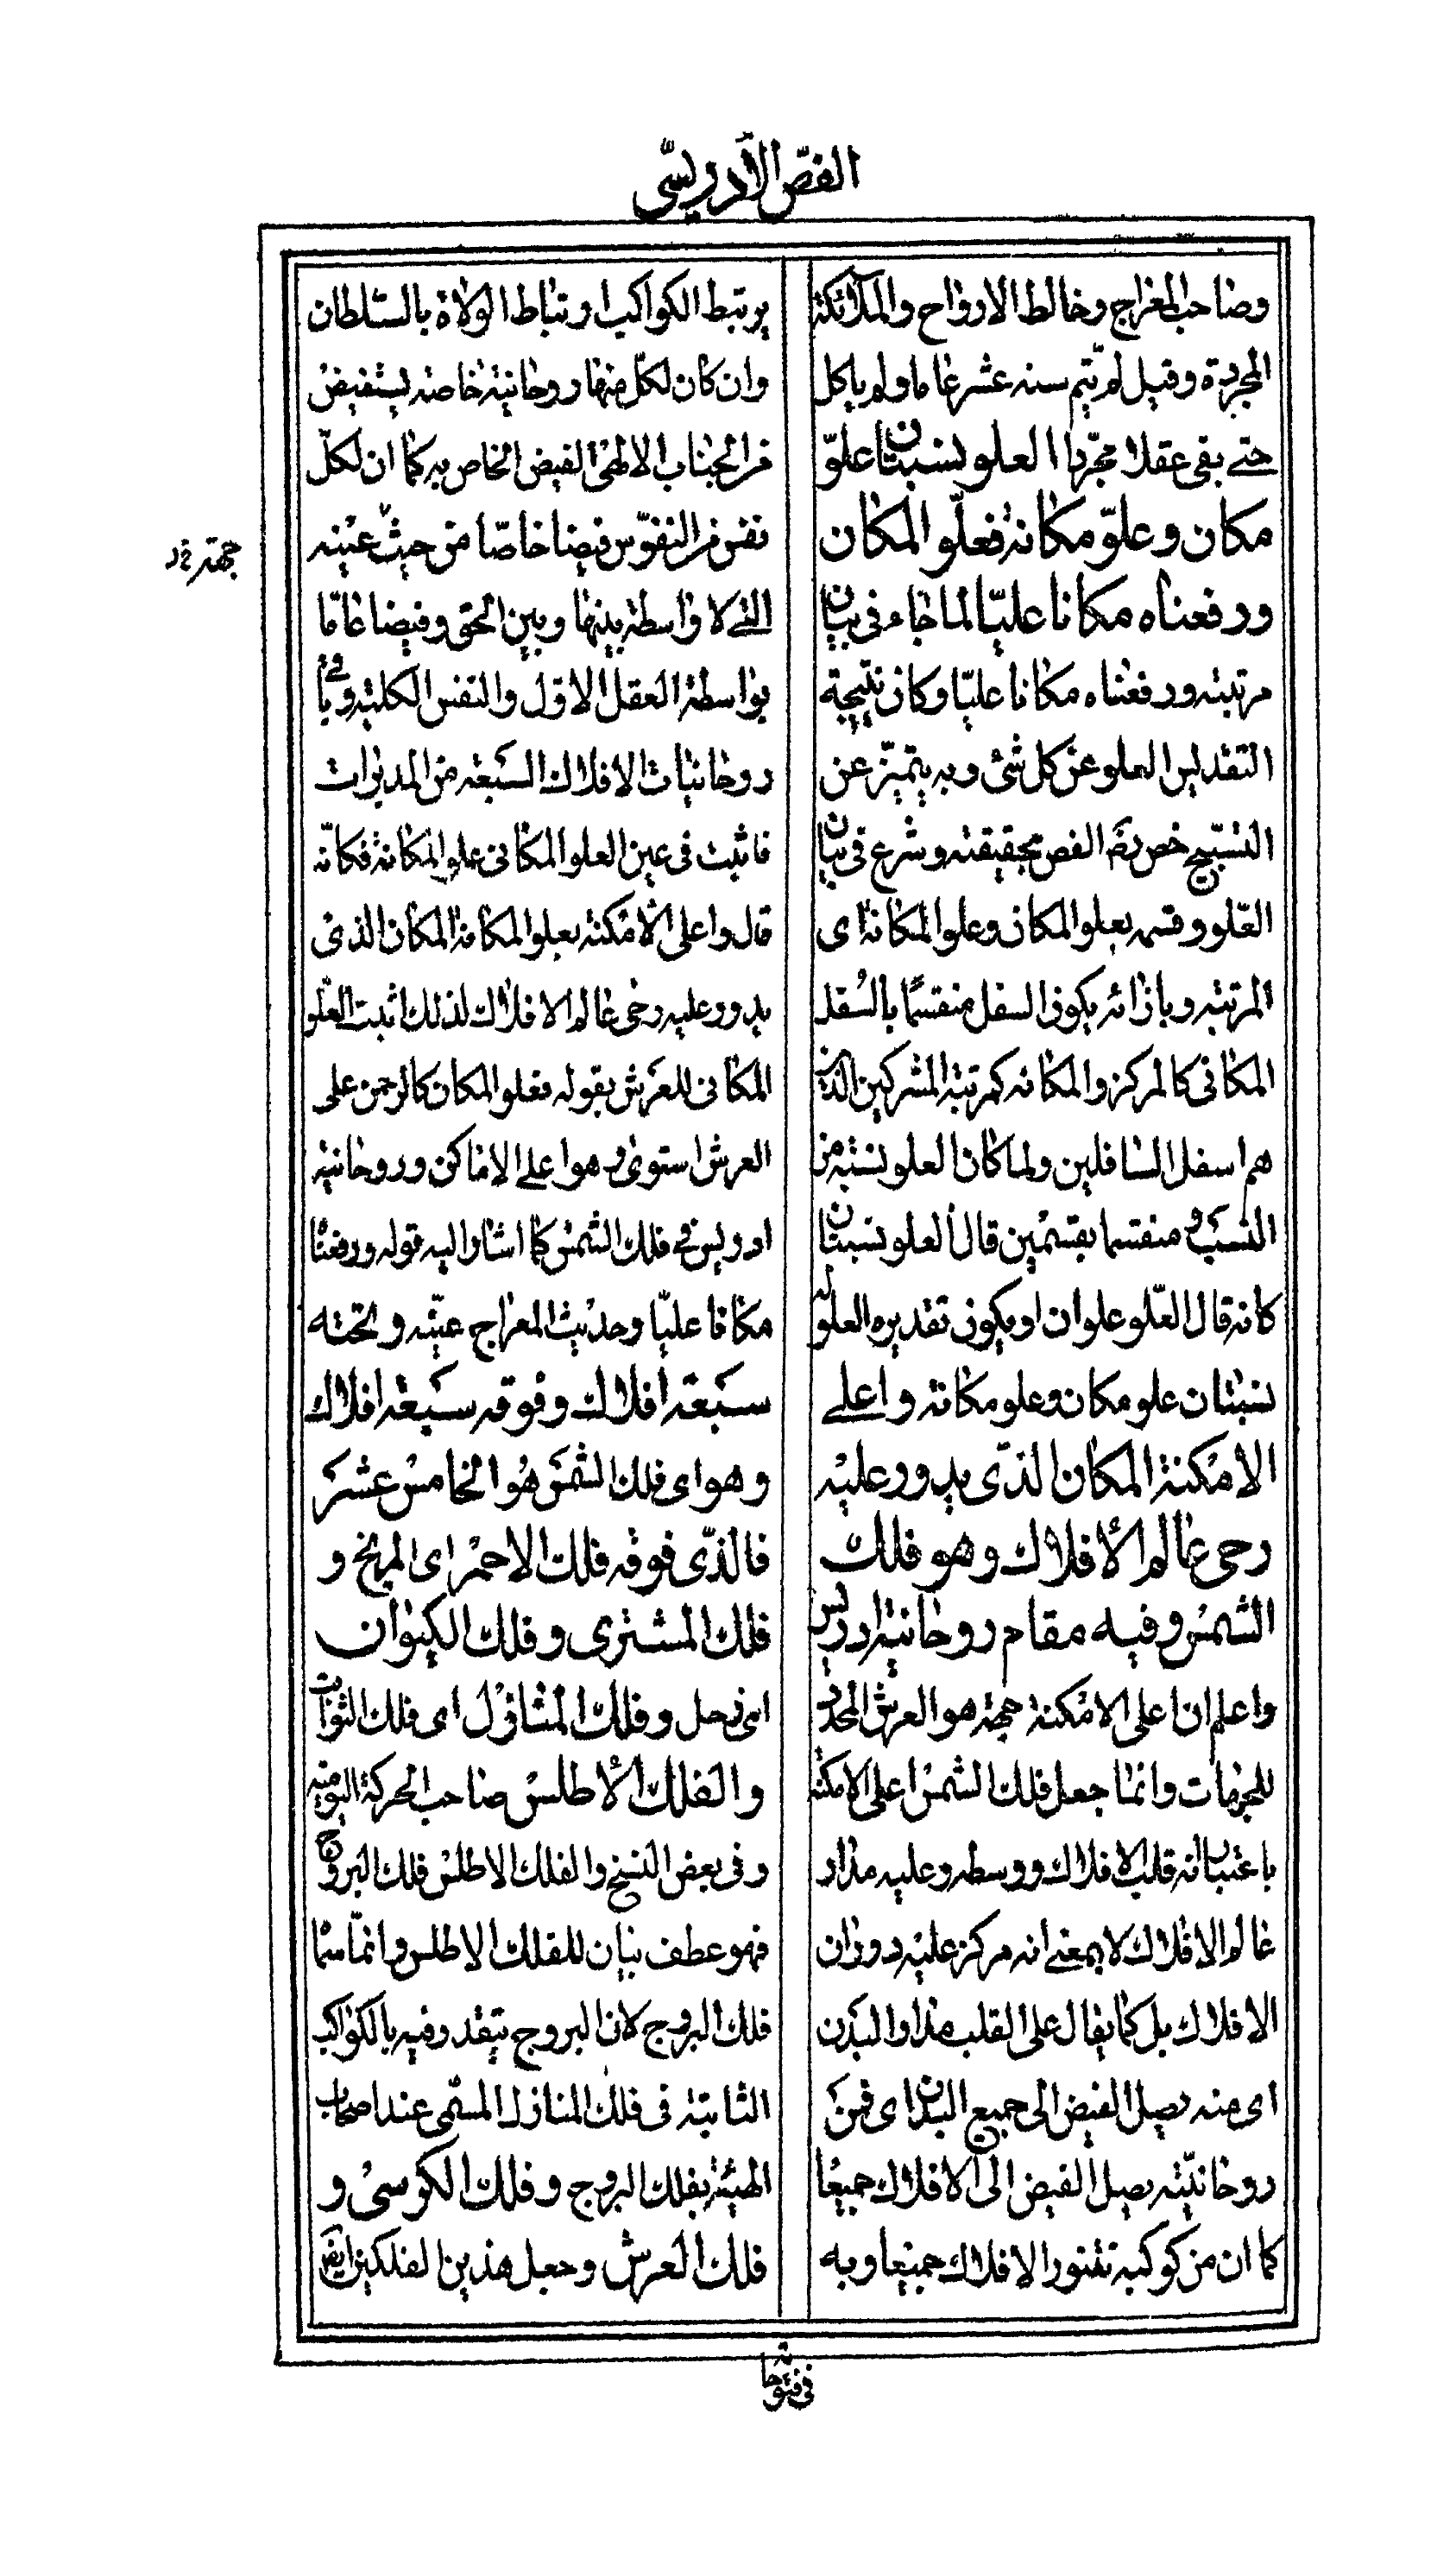 الفصّ الادريسّى
وصاحب المعراج وخالط الارواح والملائكة
المجردة وقيل لم يتم ستة عشر عاما ولم ياكل
حتى بقى عقلا مجرّدا العلو نسبتان علوّ
مكان وعلوّ مكانة فعلّو المكان
ورفعناه مكانا عليّا لما جاء فى بيان
مرتبته ورفعناه مكانا عليّا وكان نتيجة
التقديس العلو عن كل شئ وبه يتميّز عن
التسبيح خص رضه الفص بحقيقته وشرع فى بيان
العّلو وقسمه بعلو المكان وعلو المكانة اى
المرتبة وبازائه يكون السفل منقسمًا بالسفل
المكانى كالمركز والمكانه كمرتبة المشركين الذين
هم اسفل السافلين ولما كان العلو نسبة من
النسب و منقسما بقسمين قال العلو نسبتان
كانه قال العّلو علوان او يكون تقديره العلو له
نسبتان علو مكان وعلو مكانة واعلى
الامكنة المكان الذّى يدور عليه
رحى عالم الأفلاك وهو فلك
الشمس وفيه مقام روحانية ادريس
واعلم ان اعلى الامكنة جهة هو العرش المحدد
للجهات وانما جعل فلك الشمس اعلى الامكنة
باعتبار انه قلب الافلاك ووسطه وعليه مدار
عالم الافلاك لا بمعنى انه مركز عليه دوران
الافلاك بل كما يقال على القلب مدار البدن
اى منه يصل الفيض الى جميع البدن اى فمن
روحانيّته يصل الفيض الى الافلاك جميعا
كما ان من كوكبه تتنور الافلاك جميعا وبه
يرتبط الكواكب ارتباط الولاة بالسّلطان
وان كان لكلّ منها روحانية خاصة يستفيض
من الجناب الالهى الفيض الخاص به كما ان لكلّ
نفس من النفوّس فيضا خاصّا من حيث عينه
التى لا واسطة بينها وبين الحق وفيضا عامّا
بواسطة العقل الاول والنفس الكلية وباقى
روحانيات الافلاك السبعة من المدبرات
فاثبت فى عين العلو المكانى علو المكانة فكانّه
قال واعلى الامكنة بعلو المكانة المكان الذى
يدور عليه رحى عالم الافلاك لذلك اثبت العلو
المكانى للعرش بقوله فعلو المكان كالرحمن على
العرش استوى وهو اعلى الاماكن وروحانية
ادريس فى فلك الشمس كما اشار اليه قوله ورفعنا
مكانا عليّا وحديث المعراج عيّنه وتحته
سبعة افلاك وفوقه سبعة افلاك
وهو اى فلك الشمس هو الخامس عشر
فالذّى فوقه فلك الاحمر اى المريخ و
فلك المشترى وفلك الكيوان
اى زحل وفلك المنازل اى فلك الثوابت
والفلك الأطلس صاحب الحركة اليومية
وفى بعض النسخ والفلك الاطلس فلك البروج
فهو عطف بيان للفلك الاطلس وانمّا سما
فلك البروج لان البروج يتقدر فيه بالكواكب
الثابتة فى فلك المنازل المسمّى عند اصحاب
الهيئة بفلك البروج وفلك الكرسى و
فلك العرش وجعل هذين الفلكين ايض
فى فتوحاته